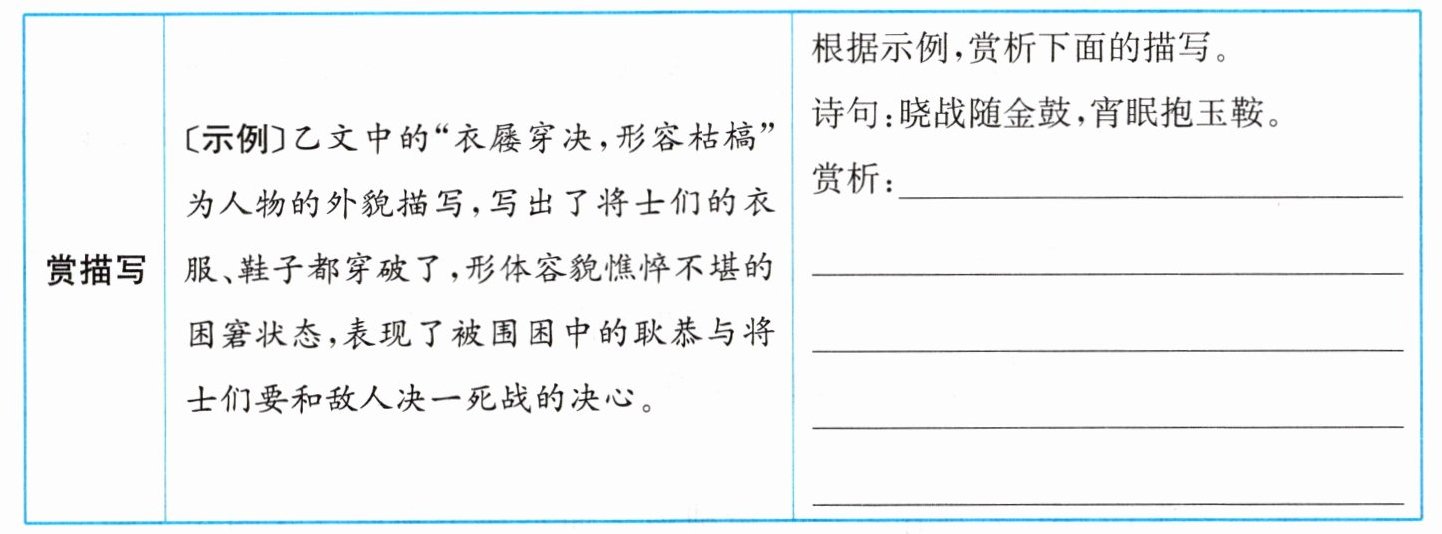 赏描写
〔示例〕乙文中的“衣屦穿决,形容枯槁”
为人物的外貌描写,写出了将士们的衣
服、鞋子都穿破了,形体容貌憔悴不堪的
困窘状态,表现了被围困中的耿恭与将
士们要和敌人决一死战的决心。
根据示例,赏析下面的描写。
诗句:晓战随金鼓,宵眠抱玉鞍。
赏析: